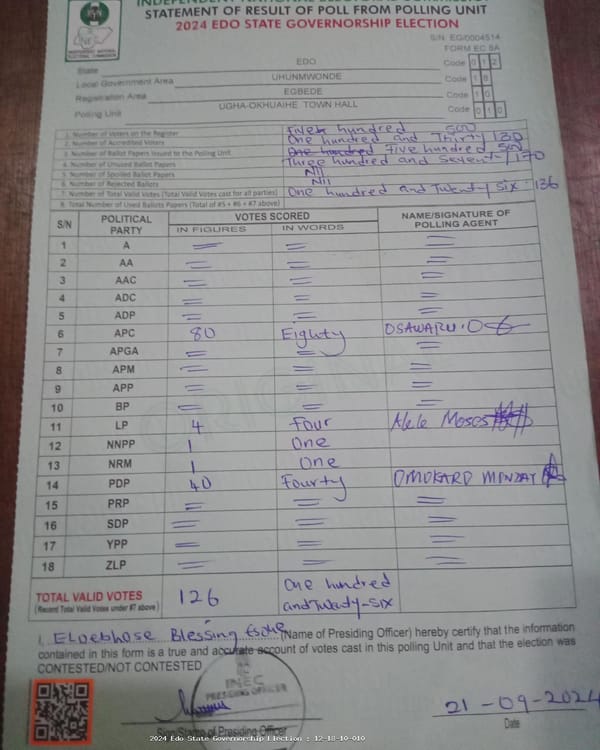 INDEPENDENT NATIONAL ELECTORAL COMMISSION
STATEMENT OF RESULT OF POLL FROM POLLING UNIT
2024 EDO STATE GOVERNORSHIP ELECTION
S/N: EG/0004514
FORM EC 8A
State EDO Code 012
Local Government Area UHUNMWONDE Code 18
Registration Area EGBEDE Code 10
Polling Unit UGHA-OKHUAIHE TOWN HALL Code 010
1. Number of Voters on the Register Five hundred 500
2. Number of Accredited Voters One hundred and Thirty 130
3. Number of Ballot Papers Issued to the Polling Unit Five hundred 500
4. Number of Unused Ballot Papers Three hundred and Seventy 170
5. Number of Spoiled Ballot Papers Nil
6. Number of Rejected Ballots Nil
7. Number of Total Valid Votes (Total Valid Votes cast for all parties) One hundred and Twenty six 136
8. Total Number of Used Ballots Papers (Total of #5 + #6 + #7 above)
S/N POLITICAL PARTY VOTES SCORED NAME/SIGNATURE OF POLLING AGENT
IN FIGURES IN WORDS
1 A = = =
2 AA = = =
3 AAC = = =
4 ADC = = =
5 ADP = = =
6 APC 80 Eighty OSAWARU.O
7 APGA = = =
8 APM = = =
9 APP = = =
10 BP = = =
11 LP 4 Four Alele Moses
12 NNPP 1 One
13 NRM 1 One
14 PDP 40 Fourty OMOKARO MONDAY
15 PRP = = =
16 SDP = = =
17 YPP = = =
18 ZLP = = =
TOTAL VALID VOTES 126 One hundred and Twenty-six
(Record Total Valid Votes under #7 above)
I, Blessing (Name of Presiding Officer) hereby certify that the information
contained in this form is a true and accurate account of votes cast in this polling Unit and that the election was
CONTESTED/NOT CONTESTED
INEC
PRESIDING OFFICER
21-09-2024
Sign/Stamp of Presiding Officer Date
2024 Edo State Governorship Election : 12-18-10-010